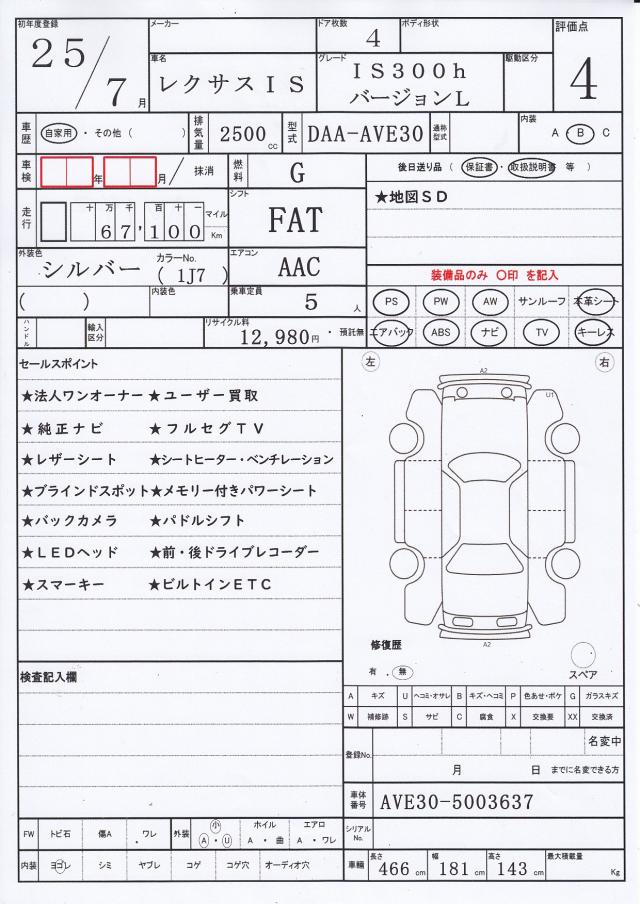 初年度登録
25/7月
メーカー
ドア枚数
4
ボディ形状
評価点
4
車名
レクサスＩＳ
グレード
ＩＳ300ｈ
バージョンＬ
駆動区分
車歴
自家用・その他（　　　）
排気量
2500cc
型式
DAA-AVE30
通称型式
内装
A・B・C
車検
年　月/　抹消
燃料
G
後日送り品（保証書・取扱説明書 等）
★地図ＳＤ
走行
十万千百十一
67,100
マイル
Km
シフト
FAT
外装色
シルバー
カラーNo.
（1J7）
エアコン
AAC
装備品のみ 〇印 を記入
（　　　）
内装色
乗車定員
5人
PS PW AW サンルーフ 本革シート
エアバック ABS ナビ TV キーレス
ハンドル
輸入区分
リサイクル料
12,980円・預託無
セールスポイント
★法人ワンオーナー★ユーザー買取
★純正ナビ　★フルセグＴＶ
★レザーシート　★シートヒーター・ベンチレーション
★ブラインドスポット★メモリー付きパワーシート
★バックカメラ　★パドルシフト
★ＬＥＤヘッド　★前・後ドライブレコーダー
★スマーキー　★ビルトインＥＴＣ
左
右
A2
U1
A2
修復歴
有．無
スペア
検査記入欄
A キズ U ヘコミ・オサレ B キズ・ヘコミ P 色あせ・ボケ G ガラスキズ
W 補修跡 S サビ C 腐食 X 交換要 XX 交換済
登録No.
名変中
月　日 までに名変できる方
車体番号
AVE30-5003637
FW トビ石 傷A ワレ
外装 小 A・U
ホイル A・曲
エアロ A・ワレ
シリアルNo.
内装 ヨゴレ シミ ヤブレ コゲ コゲ穴 オーディオ穴
車輛
長さ 466cm
幅 181cm
高さ 143cm
最大積載量 Kg